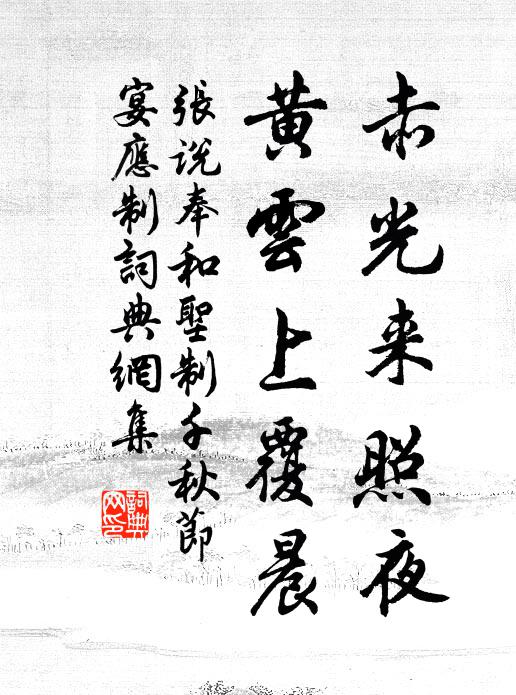 赤光来照夜
黄雲上覆晨
張說奉和聖制千秋節
宴應制詞典網集
詞典网印